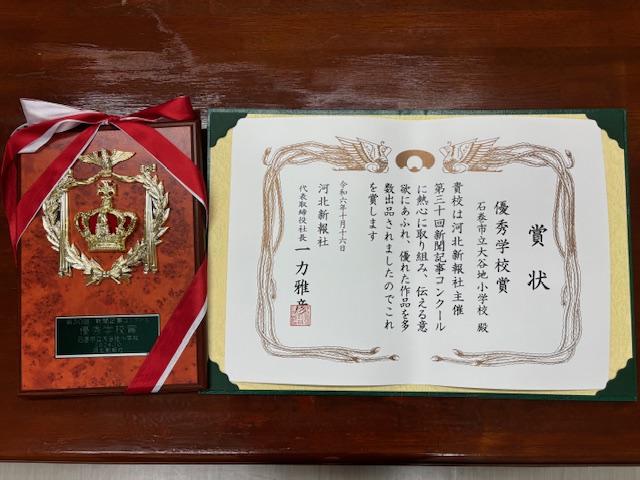 賞状
優秀学校賞
石巻市立大谷地小学校 殿
貴校は河北新報社主催
第三十回新聞記事コンクール
に熱心に取り組み、伝える意
欲にあふれ、優れた作品を多
数出品されましたのでこれ
を賞します
令和六年十月十六日
河北新報社
代表取締役社長 一力雅彦
優秀学校賞
石巻市立大谷地小学校